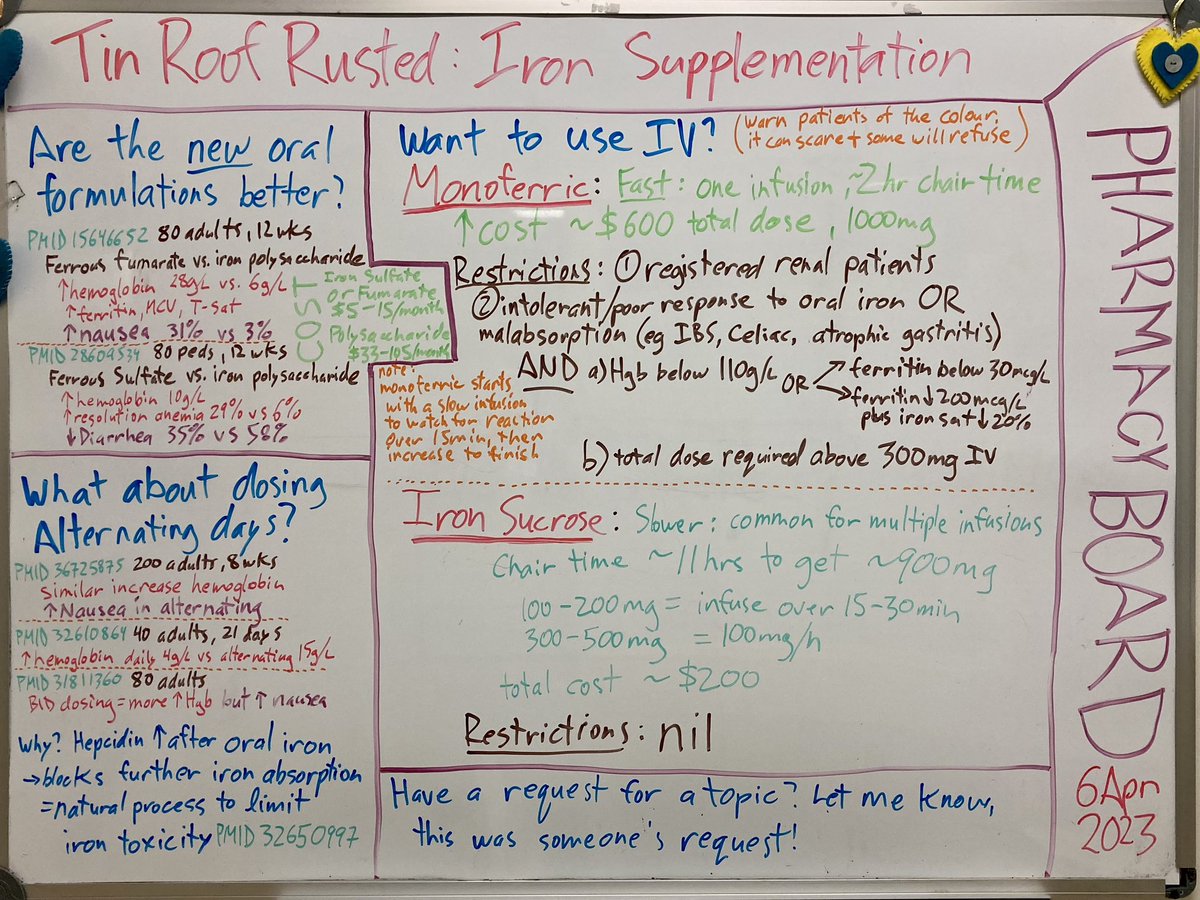 Tin Roof Rusted: Iron Supplementation
Are the new oral
formulations better?
PMID 15646652 80 adults, 12 wks
Ferrous fumarate vs. iron polysaccharide
↑hemoglobin 28g/L vs. 6g/L
↑ferritin, MCV, T-Sat
↑nausea 31% vs 3%
PMID 28609534 80 peds, 12 wks
Ferrous Sulfate vs. iron polysaccharide
↑hemoglobin 10g/L
↑resolution anemia 29% vs 6%
↓Diarrhea 35% vs 58%
COST
Iron Sulfate
or Fumarate
$5-15/month
Polysaccharide
$33-105/month
What about dosing
Alternating days?
PMID 36725875 200 adults, 8 wks
similar increase hemoglobin
↑Nausea in alternating
PMID 32610864 40 adults, 21 days
↑hemoglobin daily 4g/L vs alternating 15g/L
PMID 31811360 80 adults
BID dosing = more ↑Hgb but ↑ nausea
Why? Hepcidin ↑ after oral iron
→blocks further iron absorption
=natural process to limit
iron toxicity PMID 32650997
Want to use IV? (warn patients of the colour,
it can scare + some will refuse)
Monoferric: Fast: one infusion, ~2 hr chair time
↑cost ~$600 total dose, 1000mg
Restrictions: ① registered renal patients
② intolerant/poor response to oral iron OR
malabsorption (eg IBS, Celiac, atrophic gastritis)
AND a) Hgb below 110g/L OR → ferritin below 30mcg/L
→ferritin ↓ 200mcg/L
plus iron sat ↓ 20%
b) total dose required above 300mg IV
note:
monoferric starts
with a slow infusion
to watch for reaction
over 15min, then
increase to finish
Iron Sucrose: Slower: common for multiple infusions
Chair time ~11hrs to get ~900mg
100-200mg = infuse over 15-30min
300-500mg = 100mg/h
total cost ~$200
Restrictions: nil
Have a request for a topic? Let me know,
this was someone's request!
PHARMACY BOARD
6 Apr
2023